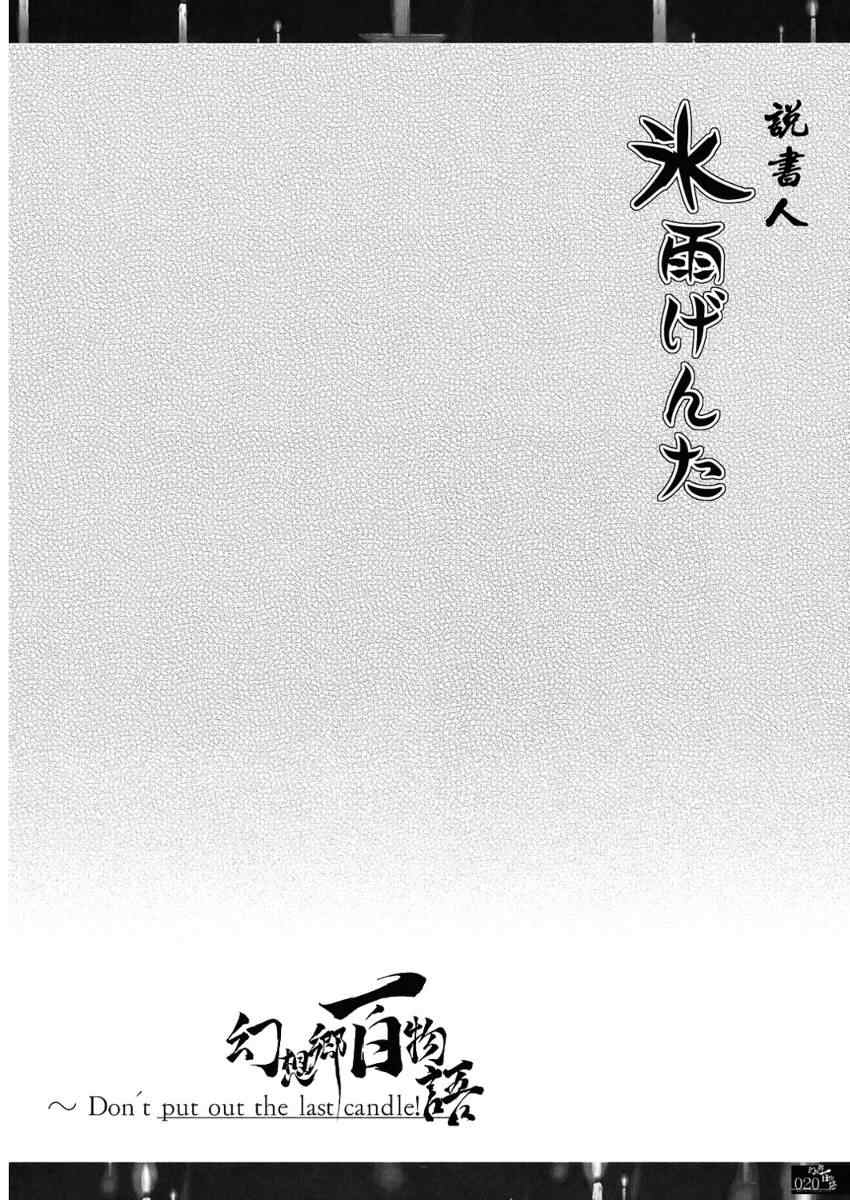 説書人
氷雨げんた
幻想郷百物語
～ Don't put out the last candle!
020